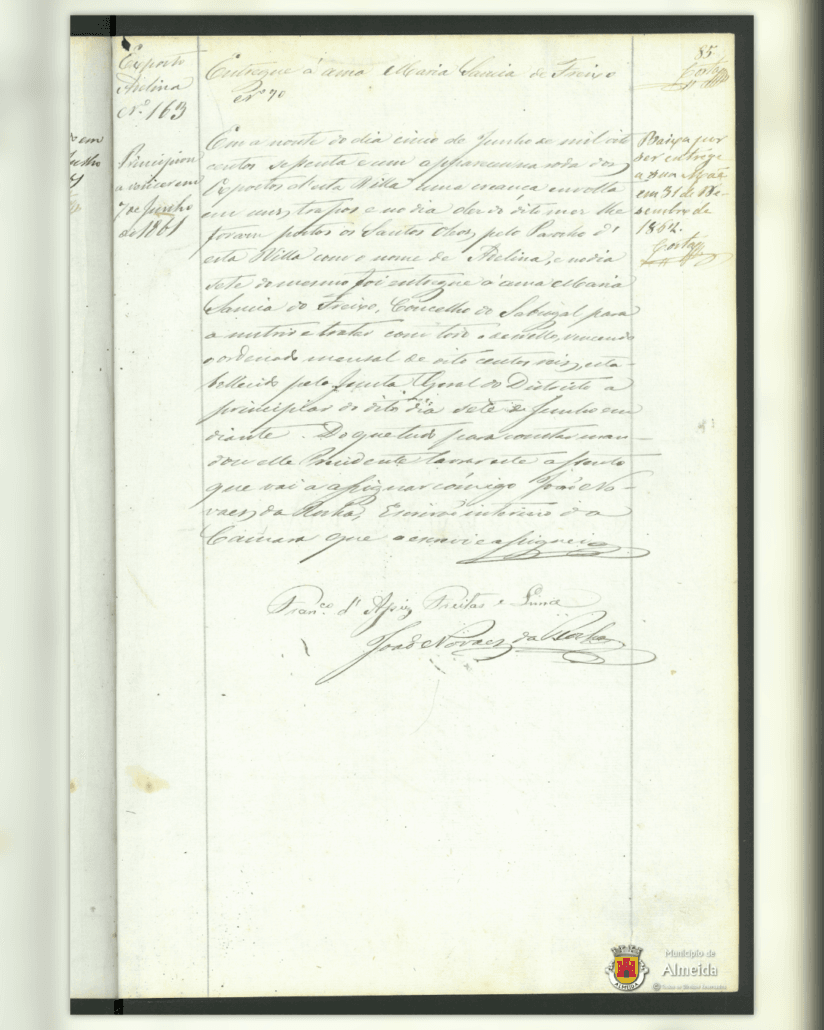 85
Costa
Exposto
Avelina
Nº 163
Entregue á ama Maria Sancia de Freixo
Nº 70
Principiou
a vencer em
7 de Junho
de 1861
Em a noute do dia cinco de Junho de mil oito
centos sesenta e um appareceu na roda dos
Expostos d'esta Villa uma creança envolta
em uns trapos e no dia do dito mez lhe
foram postos os Santos Oleos pelo Parocho d'
esta Villa com o nome de Avelina, e no dia
sete do mesmo foi entregue á ama Maria
Sancia do Freixo, Concelho do Sabugal para
a nutrir e tratar com todo o desvello, vencendo
o ordenado mensal de oito centos reis, esta-
bellecido pela Junta Geral do Districto a
principiar do dito dia sete de Junho em
diante. Do que tudo para constar man-
dou elle Presidente lavrar este assento
que vai assignar comigo João No-
vaes da Rocha, Escrivão interino da
Camara que o escrevi e assignei
Franco d'Assiz Freitas e
João Novaes da Rocha
Baixa por
ser entregue
a sua Mãe
em 31 de De-
sembro de
1862.
Costa
Município de
Almeida
ALMEIDA